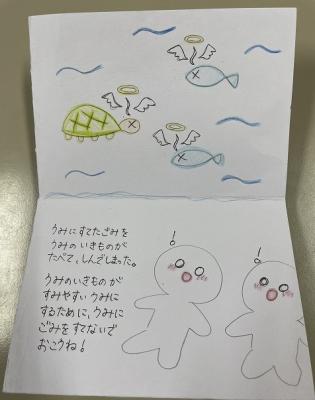 うみにすてたごみを
うみのいきものが
たべて、しんでしまった。
うみのいきものが
すみやすいうみに
するために、うみに
ごみをすてないで
おこうね!
!
!